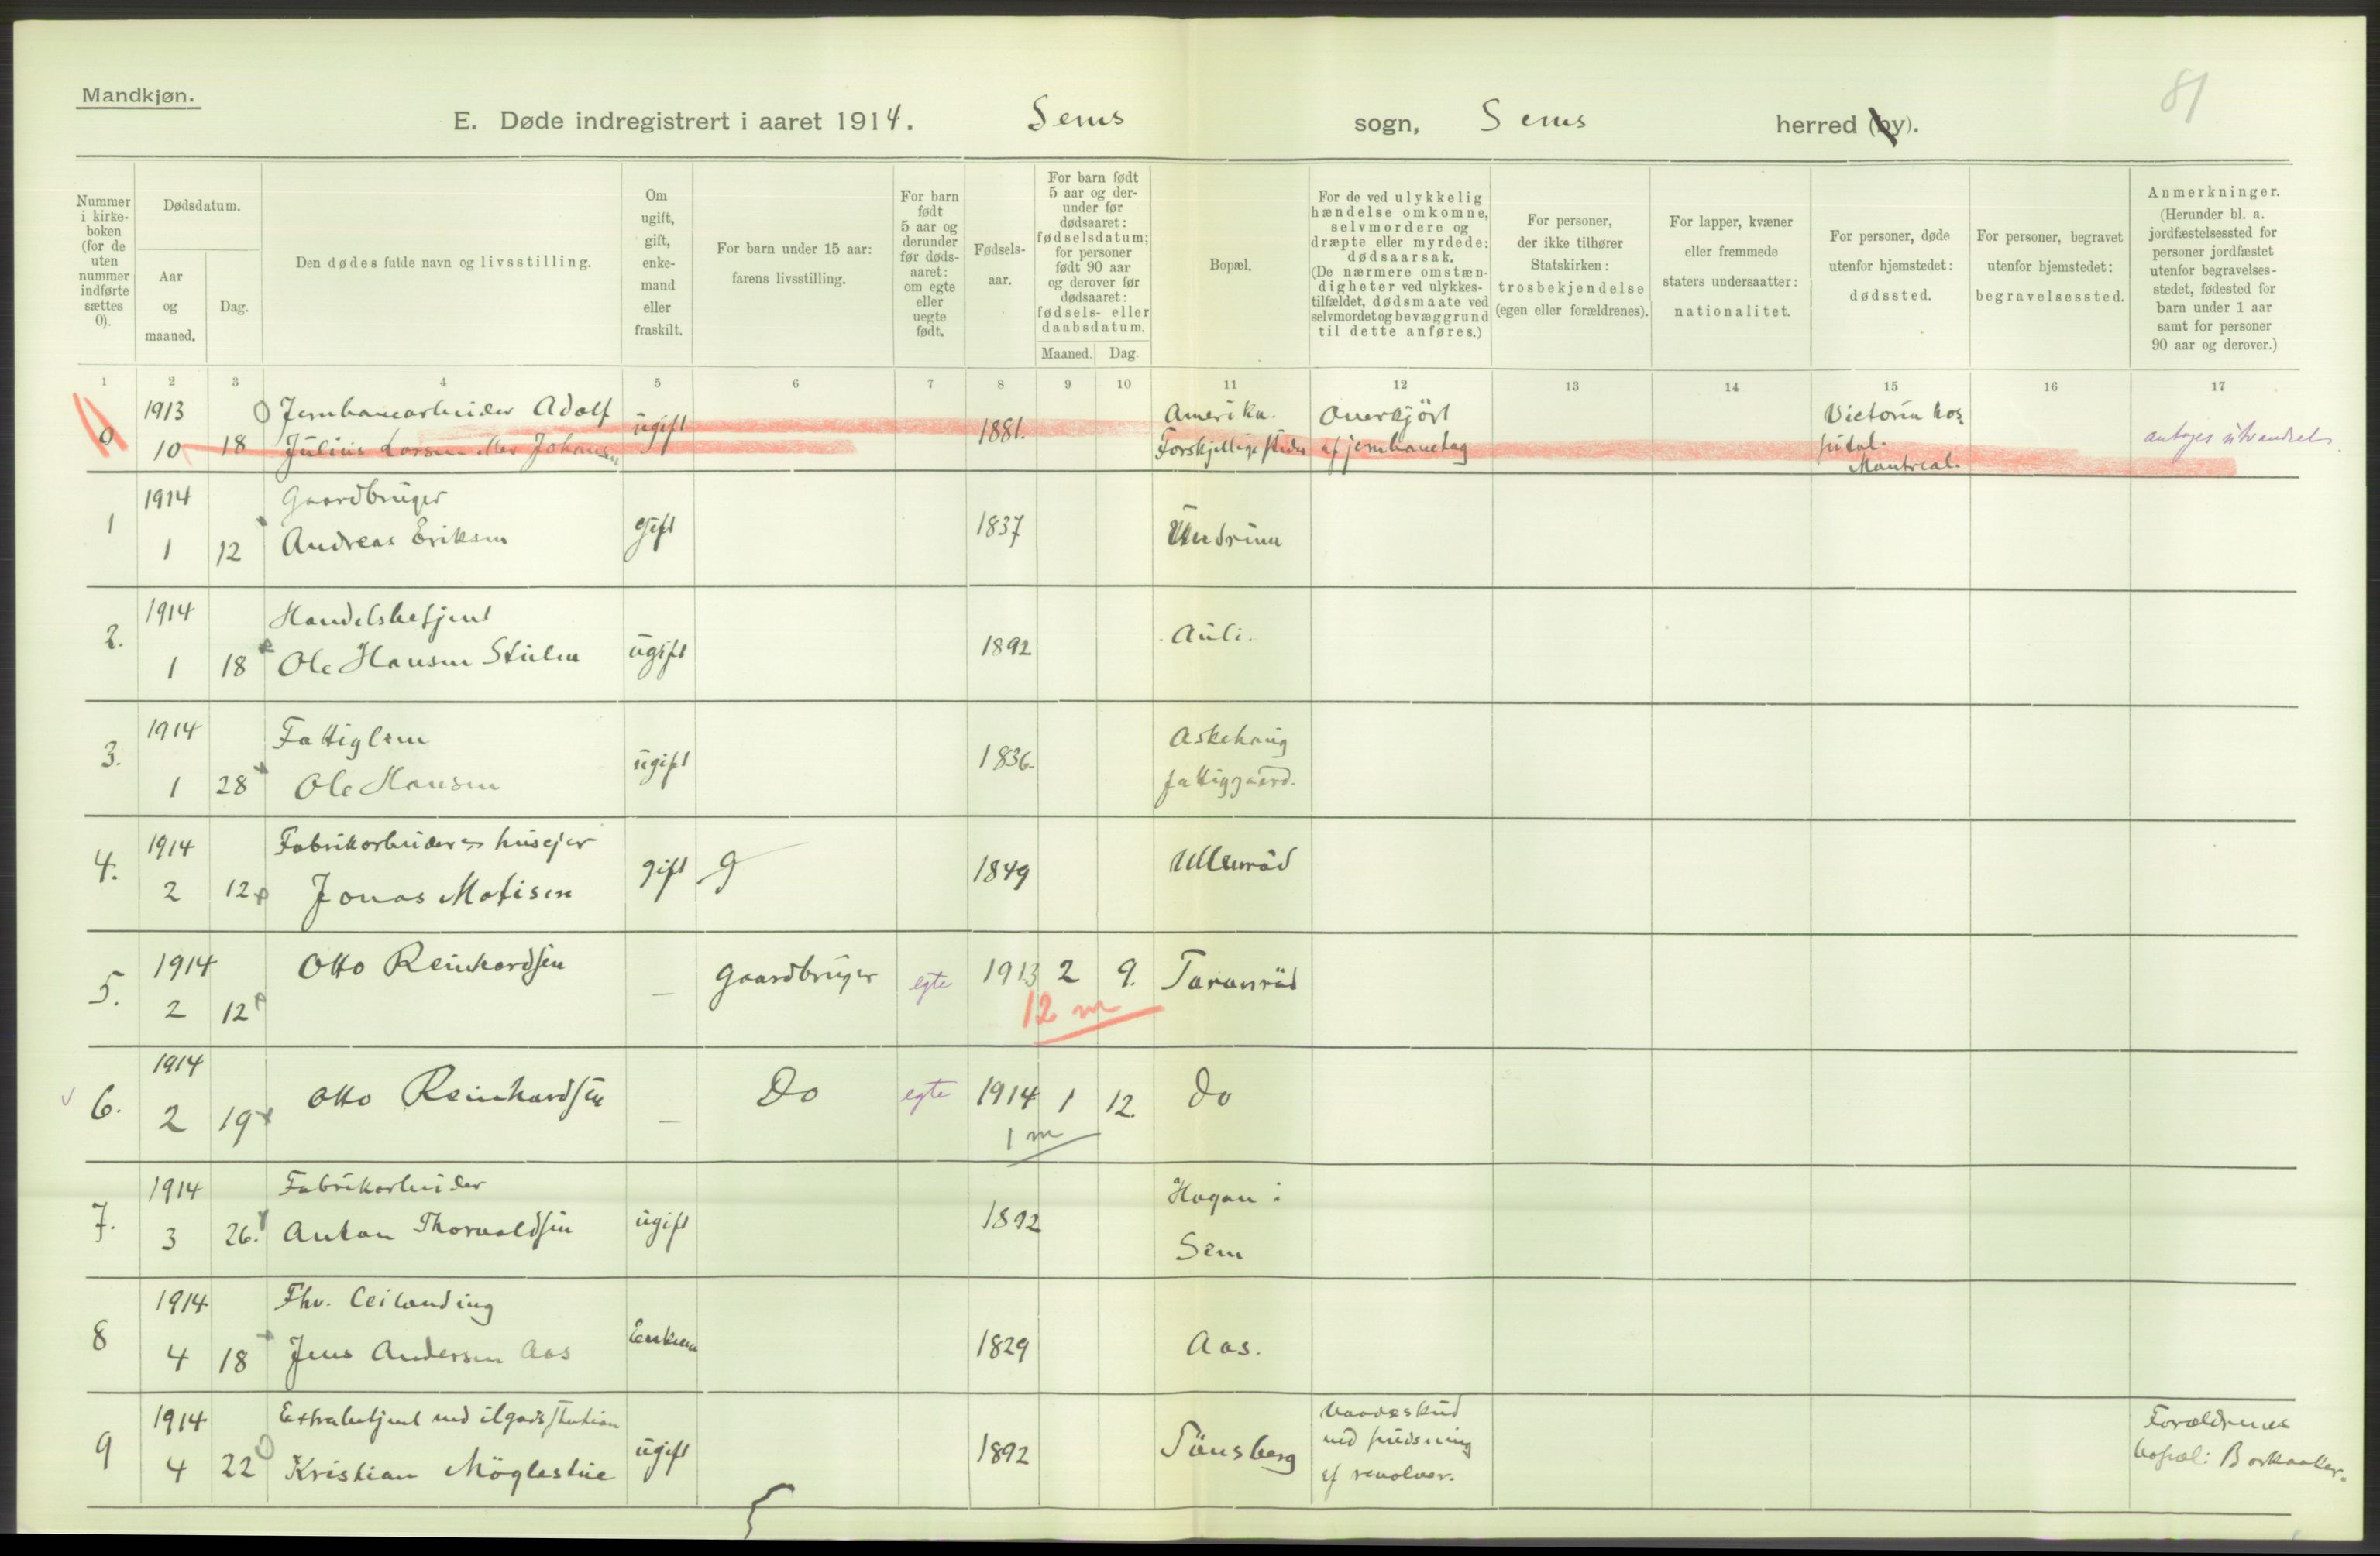 81
Mandkjøn.
E. Døde indregistrert i aaret 1914. Sems sogn, Sems herred (by).
Nummer i kirke-boken (for de uten nummer indførte sættes 0).
Dødsdatum.
Aar og maaned.
Dag.
Den dødes fulde navn og livsstilling.
Om ugift, gift, enke-mand eller fraskilt.
For barn under 15 aar: farens livsstilling.
For barn født 5 aar og derunder før døds-aaret: om egte eller uegte født.
Fødsels-aar.
For barn født 5 aar og der-under før dødsaaret: fødselsdatum; for personer født 90 aar og derover før dødsaaret: fødsels- eller daabsdatum.
Maaned. Dag.
Bopæl.
For de ved ulykkelig hændelse omkomne, selvmordere og dræpte eller myrdede: dødsaarsak. (De nærmere omstæn-digheter ved ulykkes-tilfældet, dødsmaate ved selvmordet og bevæggrund til dette anføres.)
For personer, der ikke tilhører Statskirken: trosbekjendelse (egen eller forældrenes).
For lapper, kvæner eller fremmede staters undersaatter: nationalitet.
For personer, døde utenfor hjemstedet: dødssted.
For personer, begravet utenfor hjemstedet: begravelsessted.
Anmerkninger. (Herunder bl. a. jordfæstelsessted for personer jordfæstet utenfor begravelses-stedet, fødested for barn under 1 aar samt for personer 90 aar og derover.)
1 2 3 4 5 6 7 8 9 10 11 12 13 14 15 16 17
0 1913 10 18 Jernbanearbeider Adolf Julius Larsen eller Johansen ugift 1881. Amerika. Forskjellige steder Overkjört af jernbanetog Victoria hospital. Montreal. antages utvandret
1 1914 1 12 Gaardbruger Andreas Eriksen gift 1837 Undrum
2. 1914 1 18 Handelsbetjent Ole Hansen Stulen ugift 1892 Auli.
3. 1914 1 28 Fattiglem Ole Hansen ugift 1836. Askehaug fattiggaard.
4. 1914 2 12 Fabrikarbeider husejer Jonas Matisen gift g 1849 Ullenröd
5. 1914 2 12 Otto Reinhardsen — Gaardbruger egte 1913 2 9. Taranröd
12 m
6. 1914 2 19 Otto Reinhardsen — Do egte 1914 1 12. Do
1 m
7. 1914 3 26. Fabrikarbeider Anton Thorvaldsen ugift 1892 Hagan i Sem
8 1914 4 18 Fhv. Jens Andersen Aas Enkem 1829 Aas.
9 1914 4 22 Extrabetjent ved ilgodsstation Kristian Möglestue ugift 1892 Tönsberg Vaadeskud ved pudsning af revolver. Forældrenes bopæl: Borkaaker.